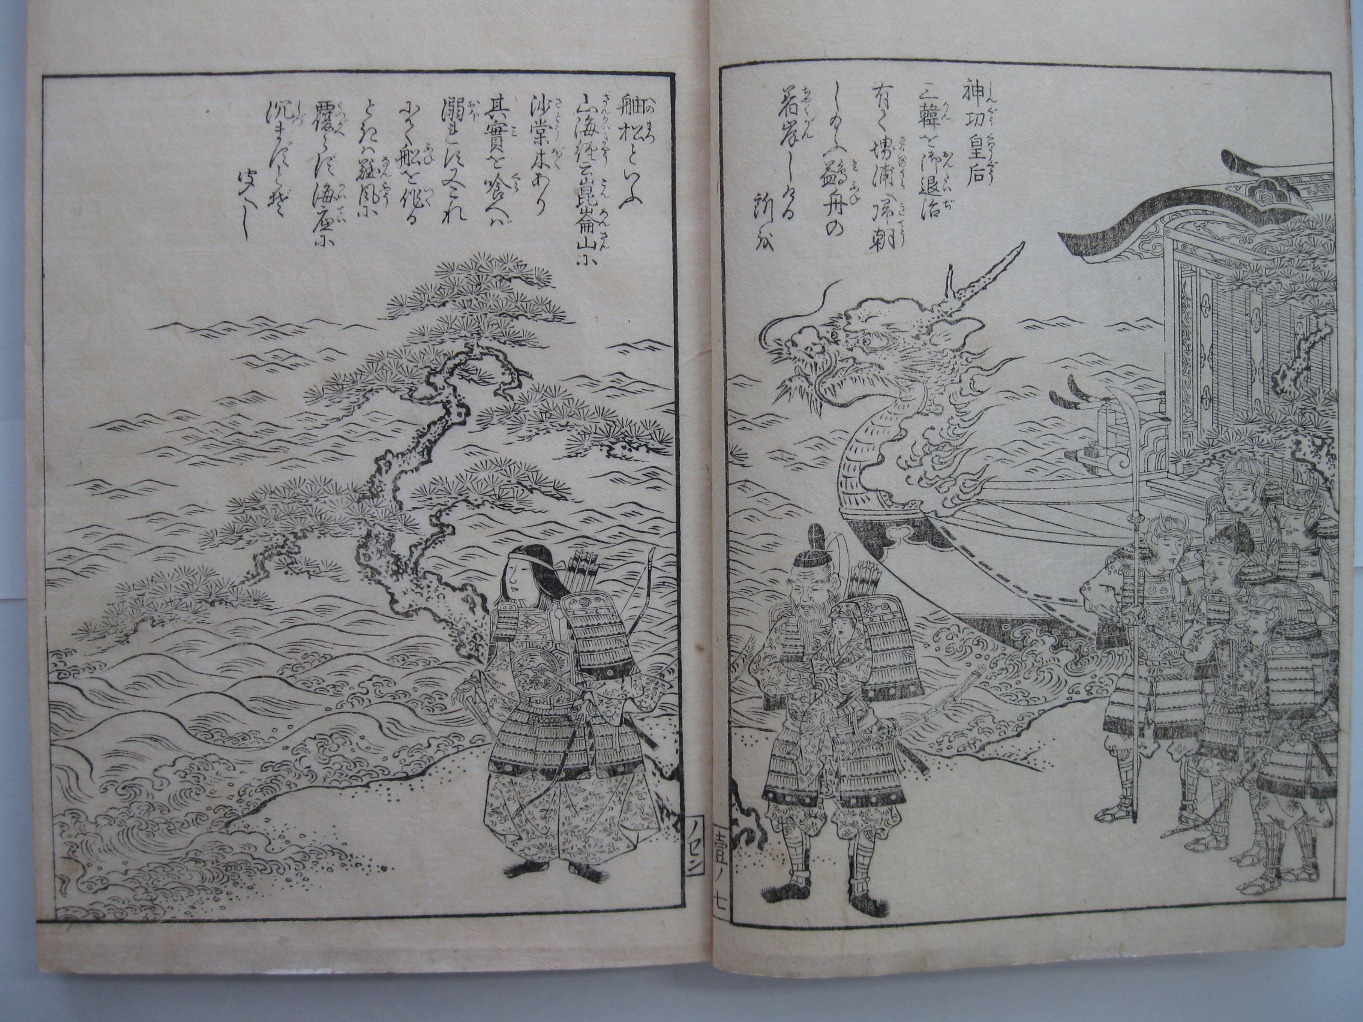 神功皇后
三韓を御退治
有て堺浦へ帰朝
しめ給ふ 鷁舟の
着岸しける
所を
舳松といふ
山海経云崑崙山に
沙棠木あり
其實を喰へバ
溺れず又これ
にて船を作る
ときハ難風に
覆らず海底に
沈まずしと
ぞ
壹ノ七